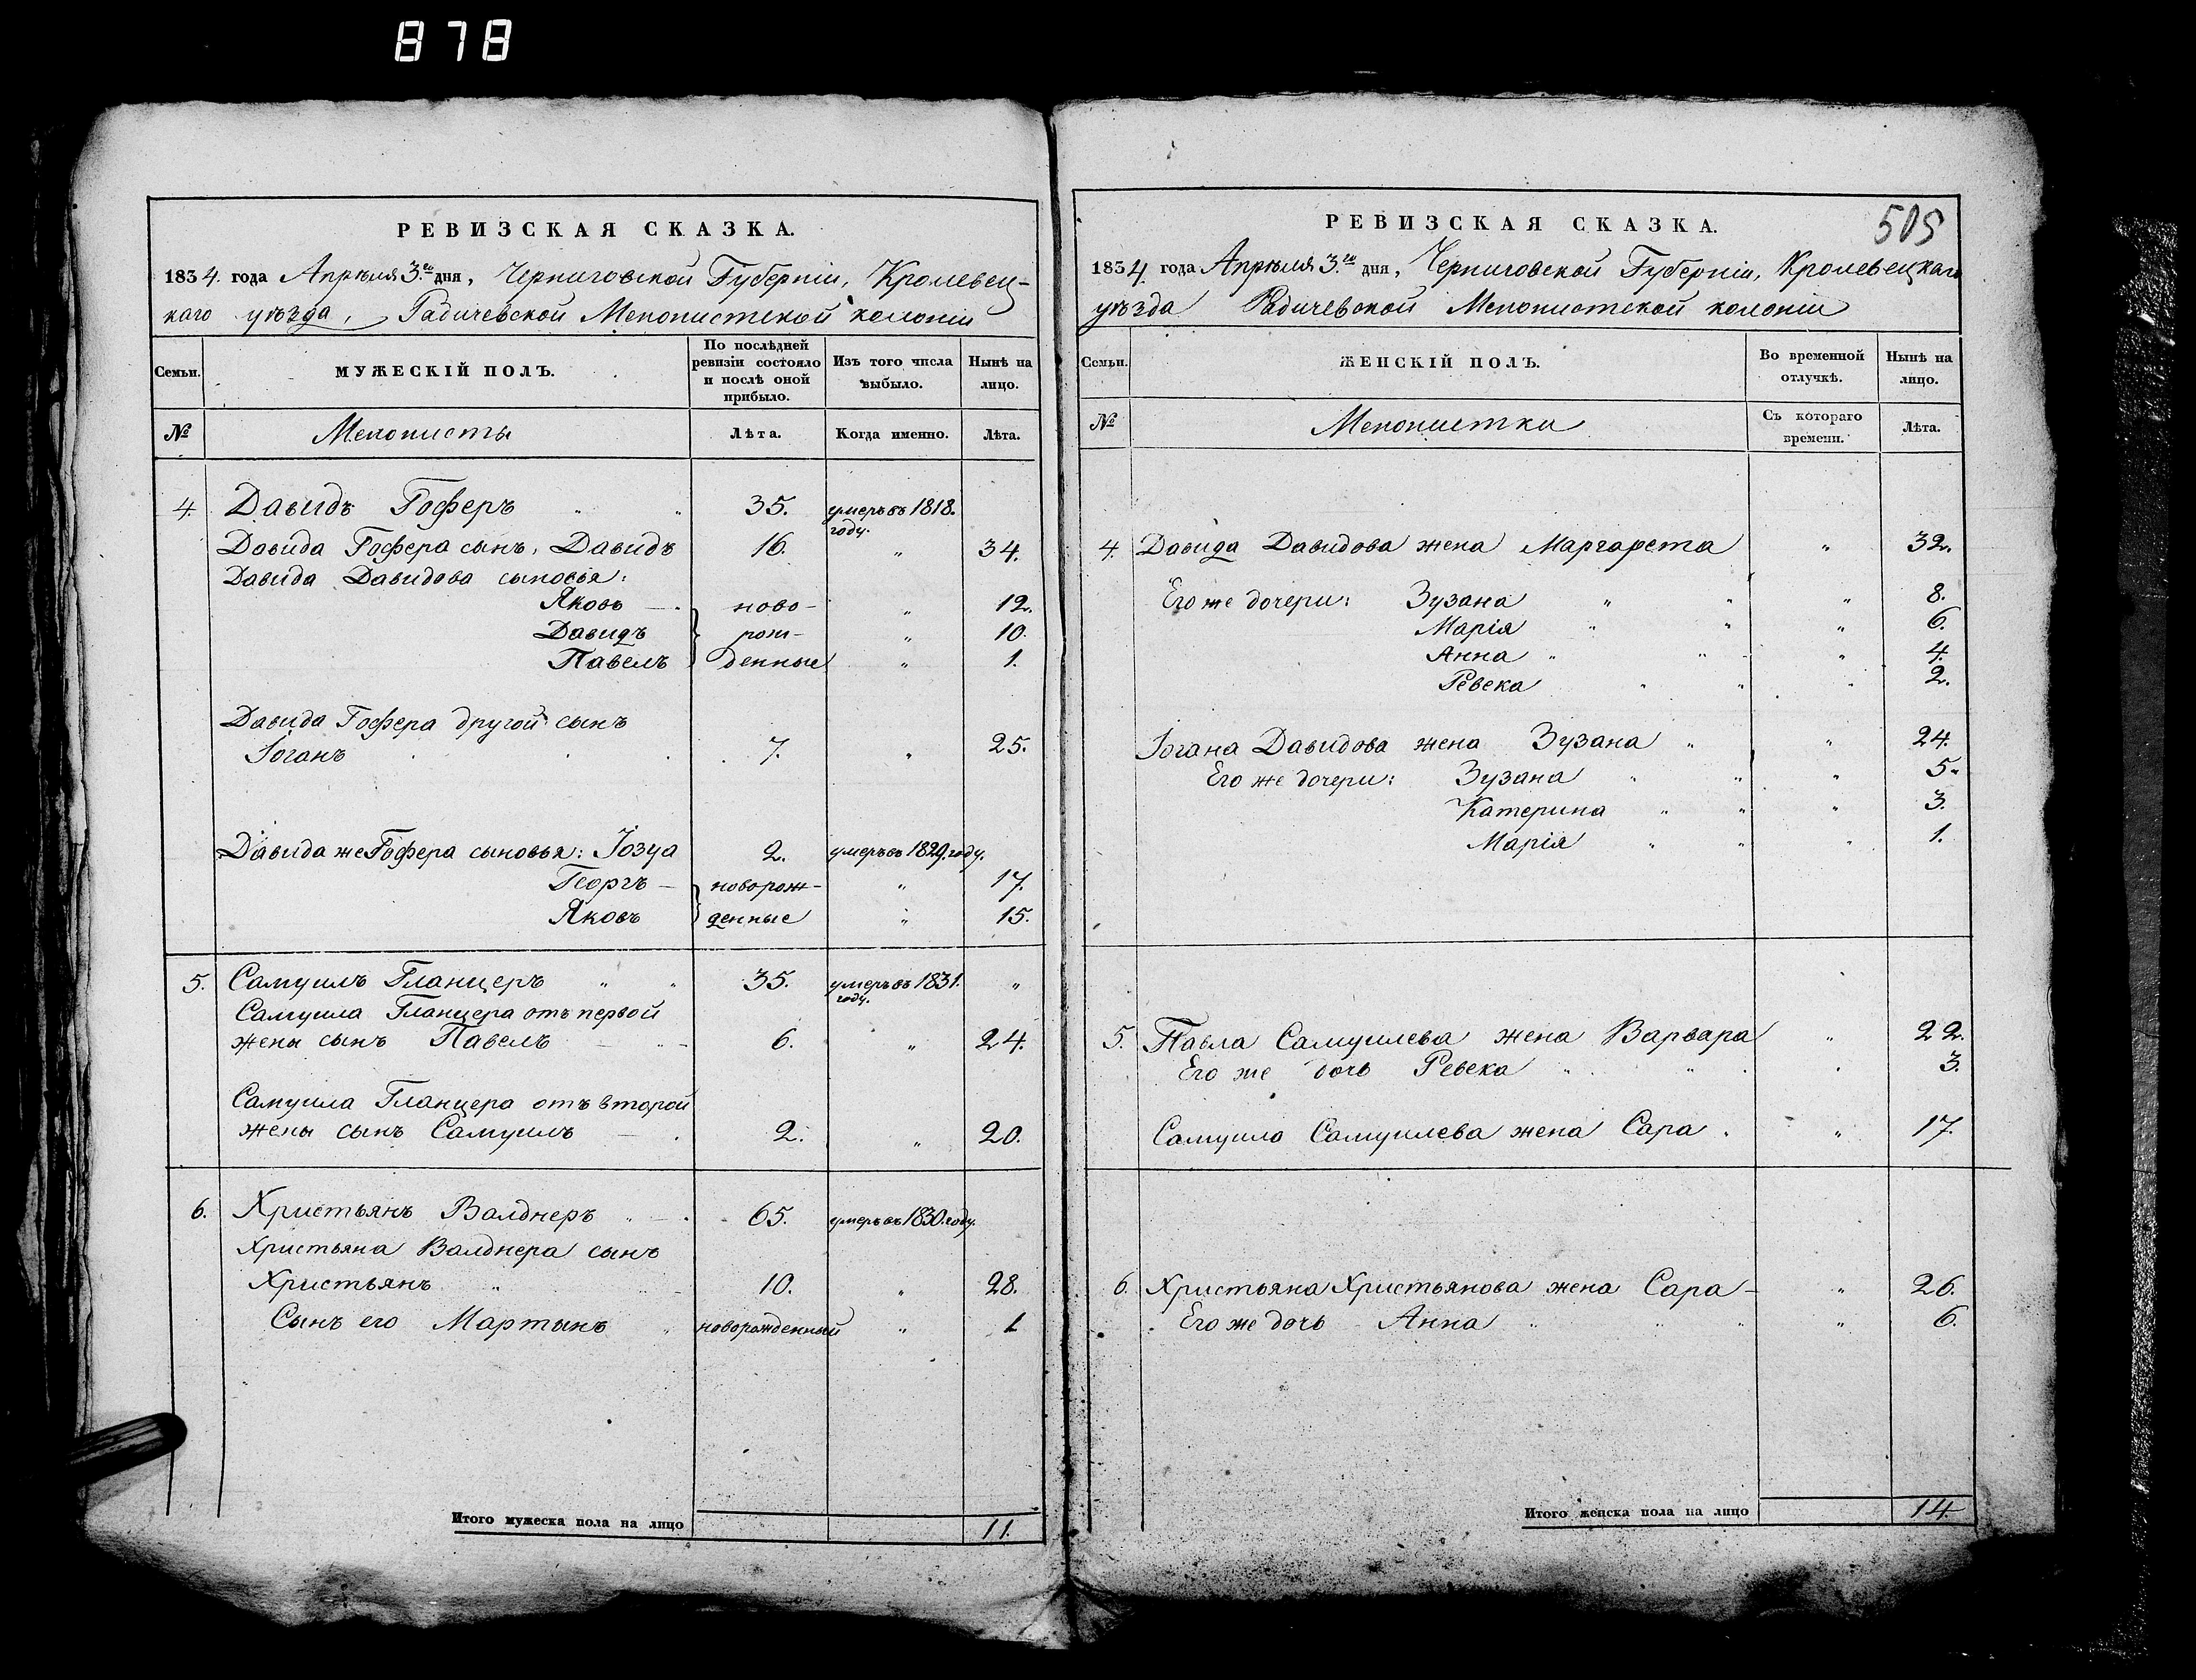 878
РЕВИЗСКАЯ СКАЗКА.
1834. года Апрѣля 3.го дня, Черниговской Губерніи, Кролевец-
каго уѣзда, Радичевской Менонистской колоніи
Семьи.
МУЖЕСКІЙ ПОЛЪ.
По послѣдней ревизіи состояло и послѣ оной прибыло.
Изъ того числа выбыло.
Нынѣ на лицо.
№
Менонисты
Лѣта.
Когда именно.
Лѣта.
4. Давидъ Гоферъ " " 35. умеръ въ 1818. году.
Давида Гофера сынъ, Давидъ 16. " 34.
Давида Давидова сыновья:
Яковъ — ново- " 12.
Давидъ рож- " 10.
Павелъ денные " 1.
Давида Гофера другой сынъ
Іоганъ 7. " 25.
Давида же Гофера сыновья: Іозуа 2. умеръ въ 1829. году.
Георгъ — новорож- " 17.
Яковъ денные " 15.
5. Самуилъ Гланцеръ " " 35. умеръ въ 1831. году. "
Самуила Гланцера отъ первой
жены сынъ Павелъ — " 6. " 24.
Самуила Гланцера отъ второй
жены сынъ Самуилъ — 2. " 20.
6. Христьянъ Валднеръ " — 65. умеръ въ 1830. году.
Христьяна Валднера сынъ
Христьянъ " " 10. " 28.
Сынъ его Мартынъ " новорожденный " 1
Итого мужеска пола на лицо 11.
РЕВИЗСКАЯ СКАЗКА.
505
1834. года Апрѣля 3.го дня, Черниговской Губерніи, Кролевецкаго
уѣзда Радичевской Менонистской колоніи
Семьи.
ЖЕНСКІЙ ПОЛЪ.
Во временной отлучкѣ.
Нынѣ на лицо.
№
Менонистки
Съ котораго времени.
Лѣта.
4. Давида Давидова жена Маргарета " 32.
Его же дочери: Зузана " " " 8.
Марія " " " 6.
Анна " " " 4.
Ревека " " " 2.
Іогана Давидова жена Зузана " " 24.
Его же дочери: Зузана " " " 5.
Катерина " " " 3.
Марія " " " 1.
5. Павла Самуилева жена Варвара " 22.
Его же дочь Ревека " " " 3.
Самуила Самуилева жена Сара . " 17.
6. Христьяна Христьянова жена Сара — " 26.
Его же дочь Анна " " " 6.
Итого женска пола на лицо 14.